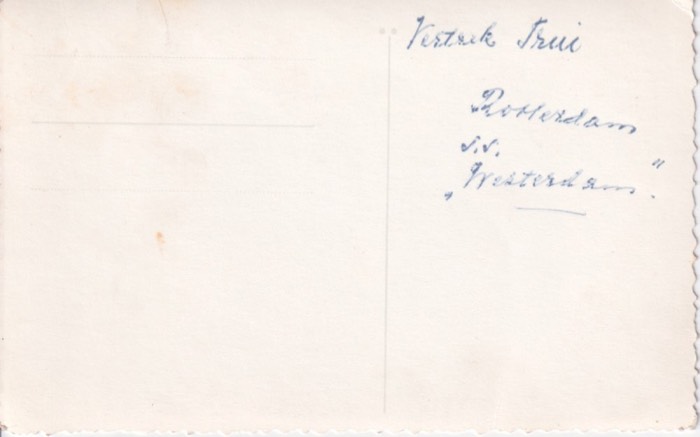 Vertrek Trui
Rotterdam
s.s.
„Westerdam".